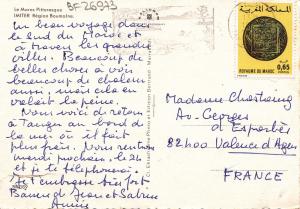 Le Maroc Pittoresque
IMITER Région Boumalne.
BF 26973
Un beau voyage dans
le Sud du Maroc et
à travers les grandes
villes. Beaucoup de
belles choses à voir
beaucoup de chaleur
aussi, mais cela en
valait la peine.
Nous voici de retour
à Tanger au bord de
la mer où il fait
plus frais. Nous rentrons
mardi prochain, le 24
et je te téléphonerai.
Je t'embrasse bien fort
Jean et Sabine
المملكة المغربية
0,65
ROYAUME DU MAROC
Madame
Av. Georges
d'Esparbès
82400 Valence d'Agen
FRANCE